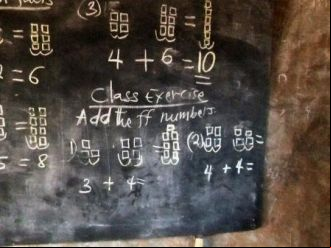 (3)
=
4 + 6 = 10
2 = 6
Class Exercise
Add the ff numbers.
=
1) = (2) =
5 = 8
3 + 4=
4 + 4=